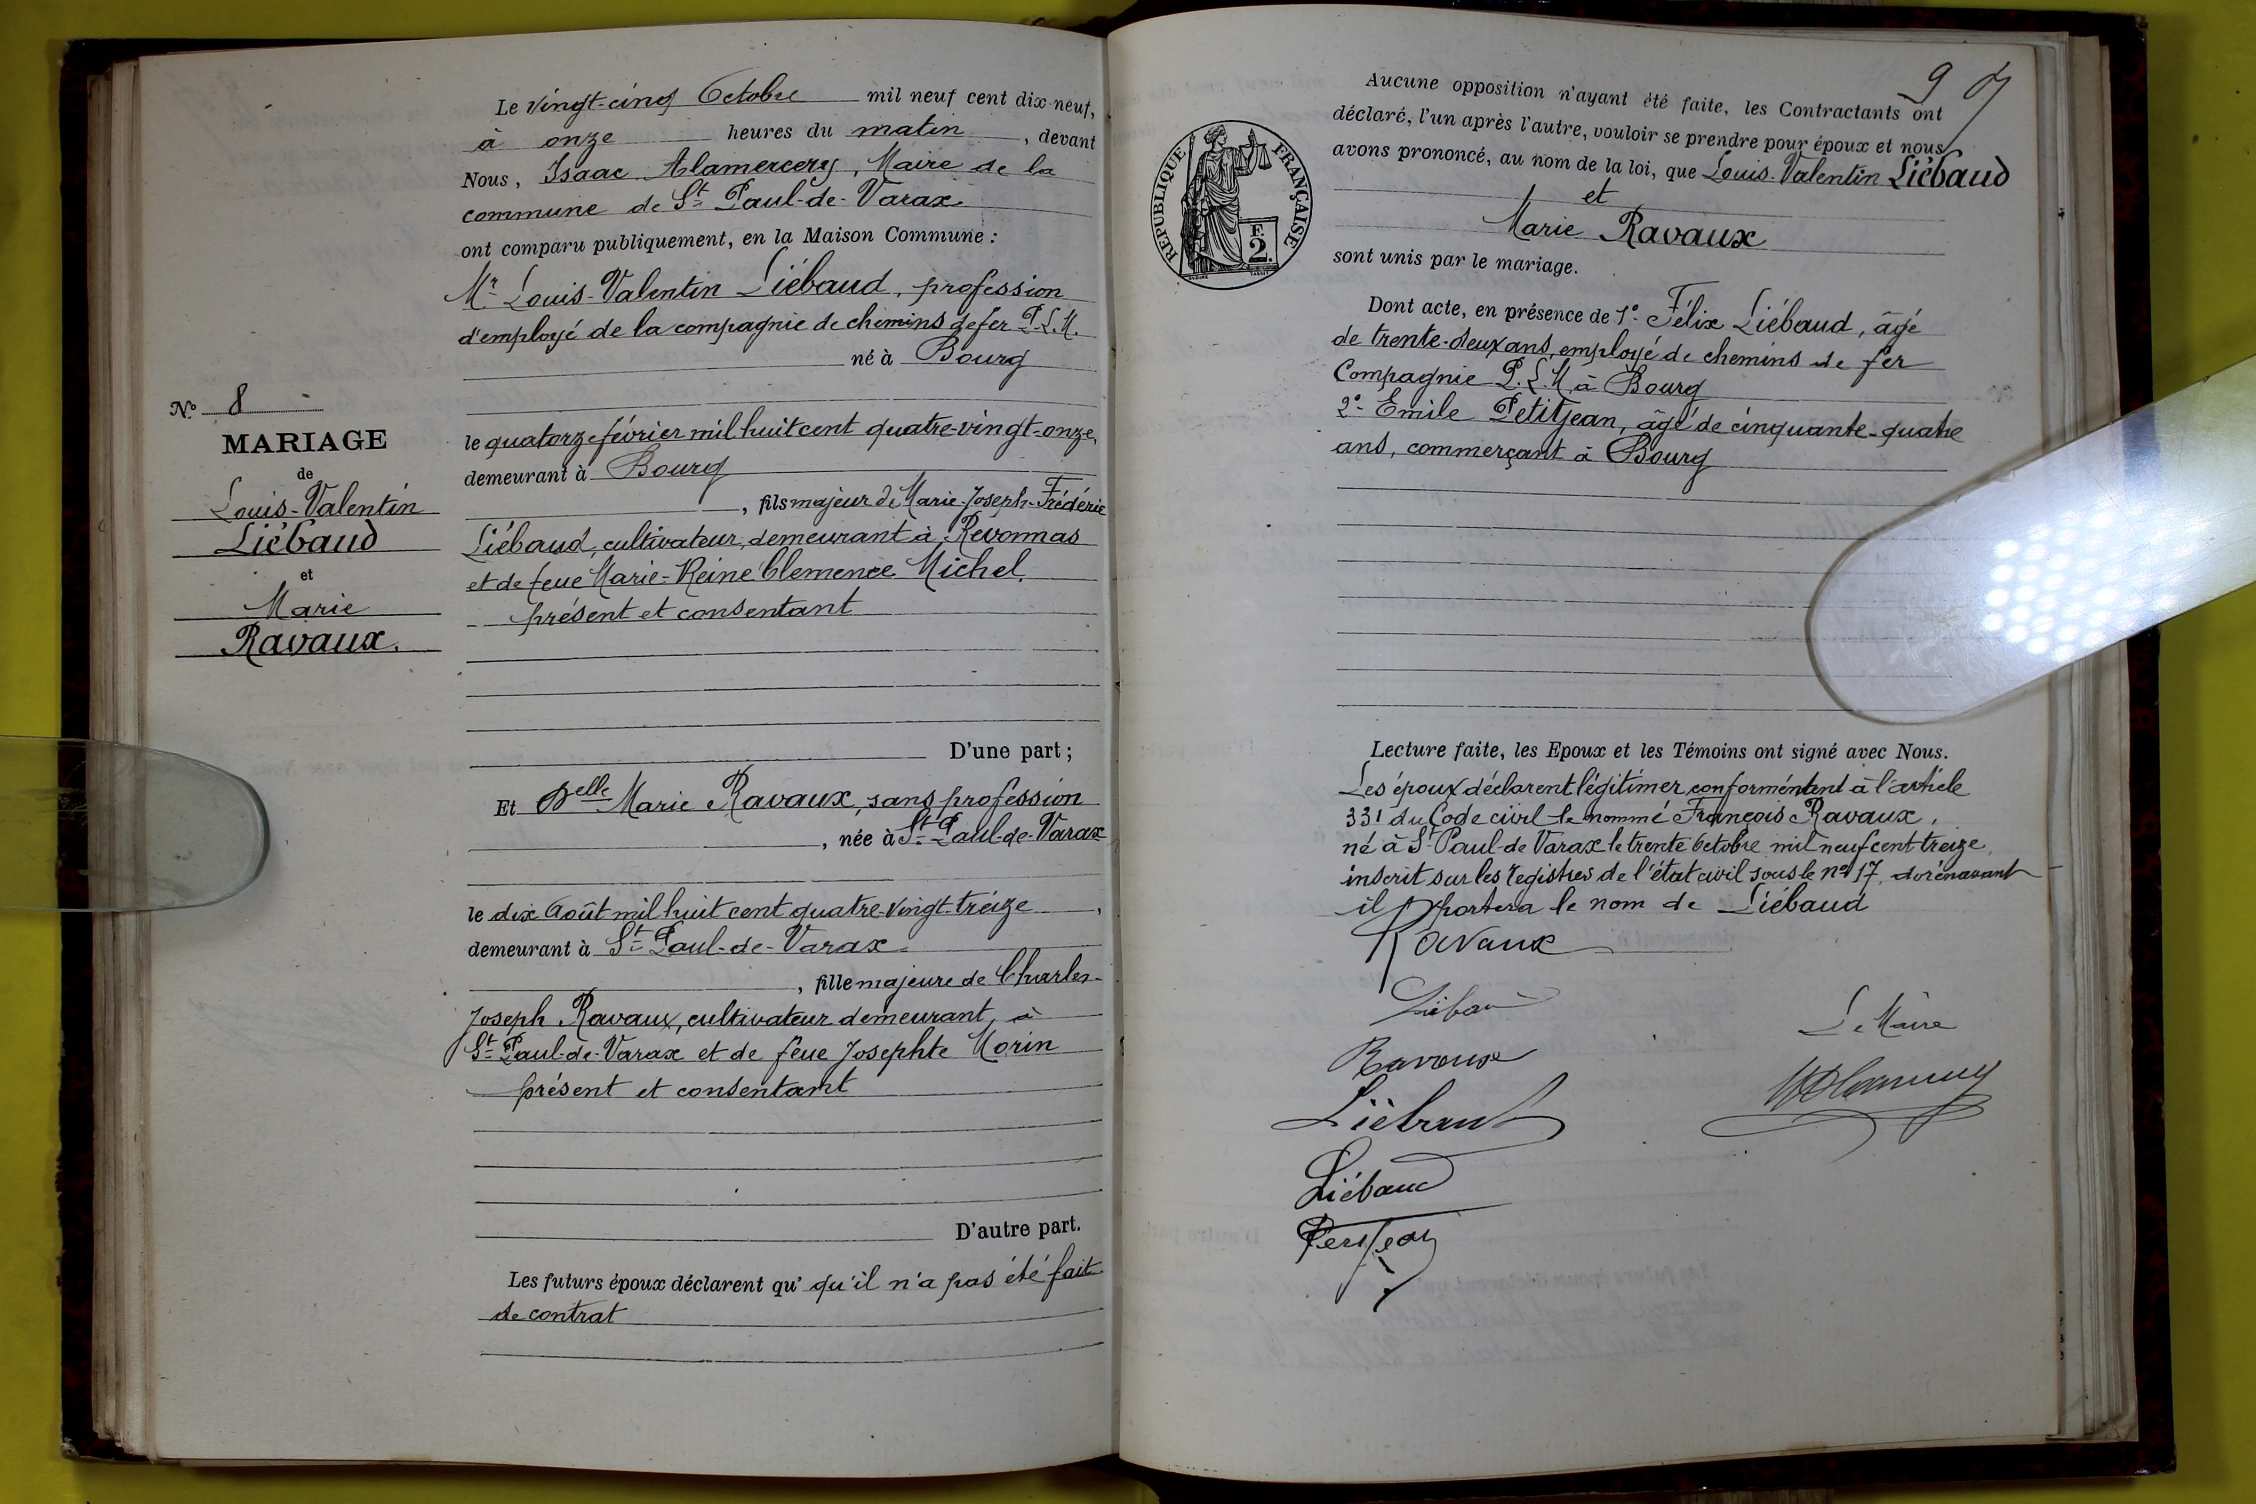 Le vingt-cinq Octobre mil neuf cent dix-neuf,
à onze heures du matin, devant
Nous, Isaac Alamercery, Maire de la
commune de St Paul-de-Varax
ont comparu publiquement, en la Maison Commune :
Mr Louis-Valentin Liébaud, profession
d'employé de la compagnie de chemins de fer P.L.M.
né à Bourg
le quatorze février mil huit cent quatre-vingt-onze,
demeurant à Bourg
, fils majeur de Marie-Joseph-Frédéric
Liébaud, cultivateur, demeurant à Revonnas
et de feue Marie-Reine Clemence Michel,
présent et consentant
D'une part ;
Et Delle Marie Ravaux, sans profession
, née à St Paul-de-Varax
le dix Août mil huit cent quatre-vingt-treize,
demeurant à St Paul-de-Varax
, fille majeure de Charles-
Joseph Ravaux, cultivateur demeurant à
St Paul-de-Varax et de feue Josephte Morin
présent et consentant
D'autre part.
Les futurs époux déclarent qu' qu'il n'a pas été fait
de contrat
No 8
MARIAGE
de
Louis-Valentin
Liébaud
et
Marie
Ravaux.
9
RÉPUBLIQUE FRANÇAISE
F.
2.
Aucune opposition n'ayant été faite, les Contractants ont
déclaré, l'un après l'autre, vouloir se prendre pour époux et nous
avons prononcé, au nom de la loi, que Louis-Valentin Liébaud
et
Marie Ravaux
sont unis par le mariage.
Dont acte, en présence de 1o Félix Liébaud, âgé
de trente-deux ans, employé de chemins de fer
Compagnie P.L.M à Bourg
2o Emile Petitjean, âgé de cinquante-quatre
ans, commerçant à Bourg
Lecture faite, les Epoux et les Témoins ont signé avec Nous.
Les époux déclarent légitimer conformément à l'article
331 du Code civil le nommé François Ravaux,
né à St Paul-de Varax le trente Octobre mil neuf cent treize
inscrit sur les registres de l'état civil sous le no 17, dorénavant
il portera le nom de Liébaud
Ravaux
Ravaux
Le Maire
Liébaud